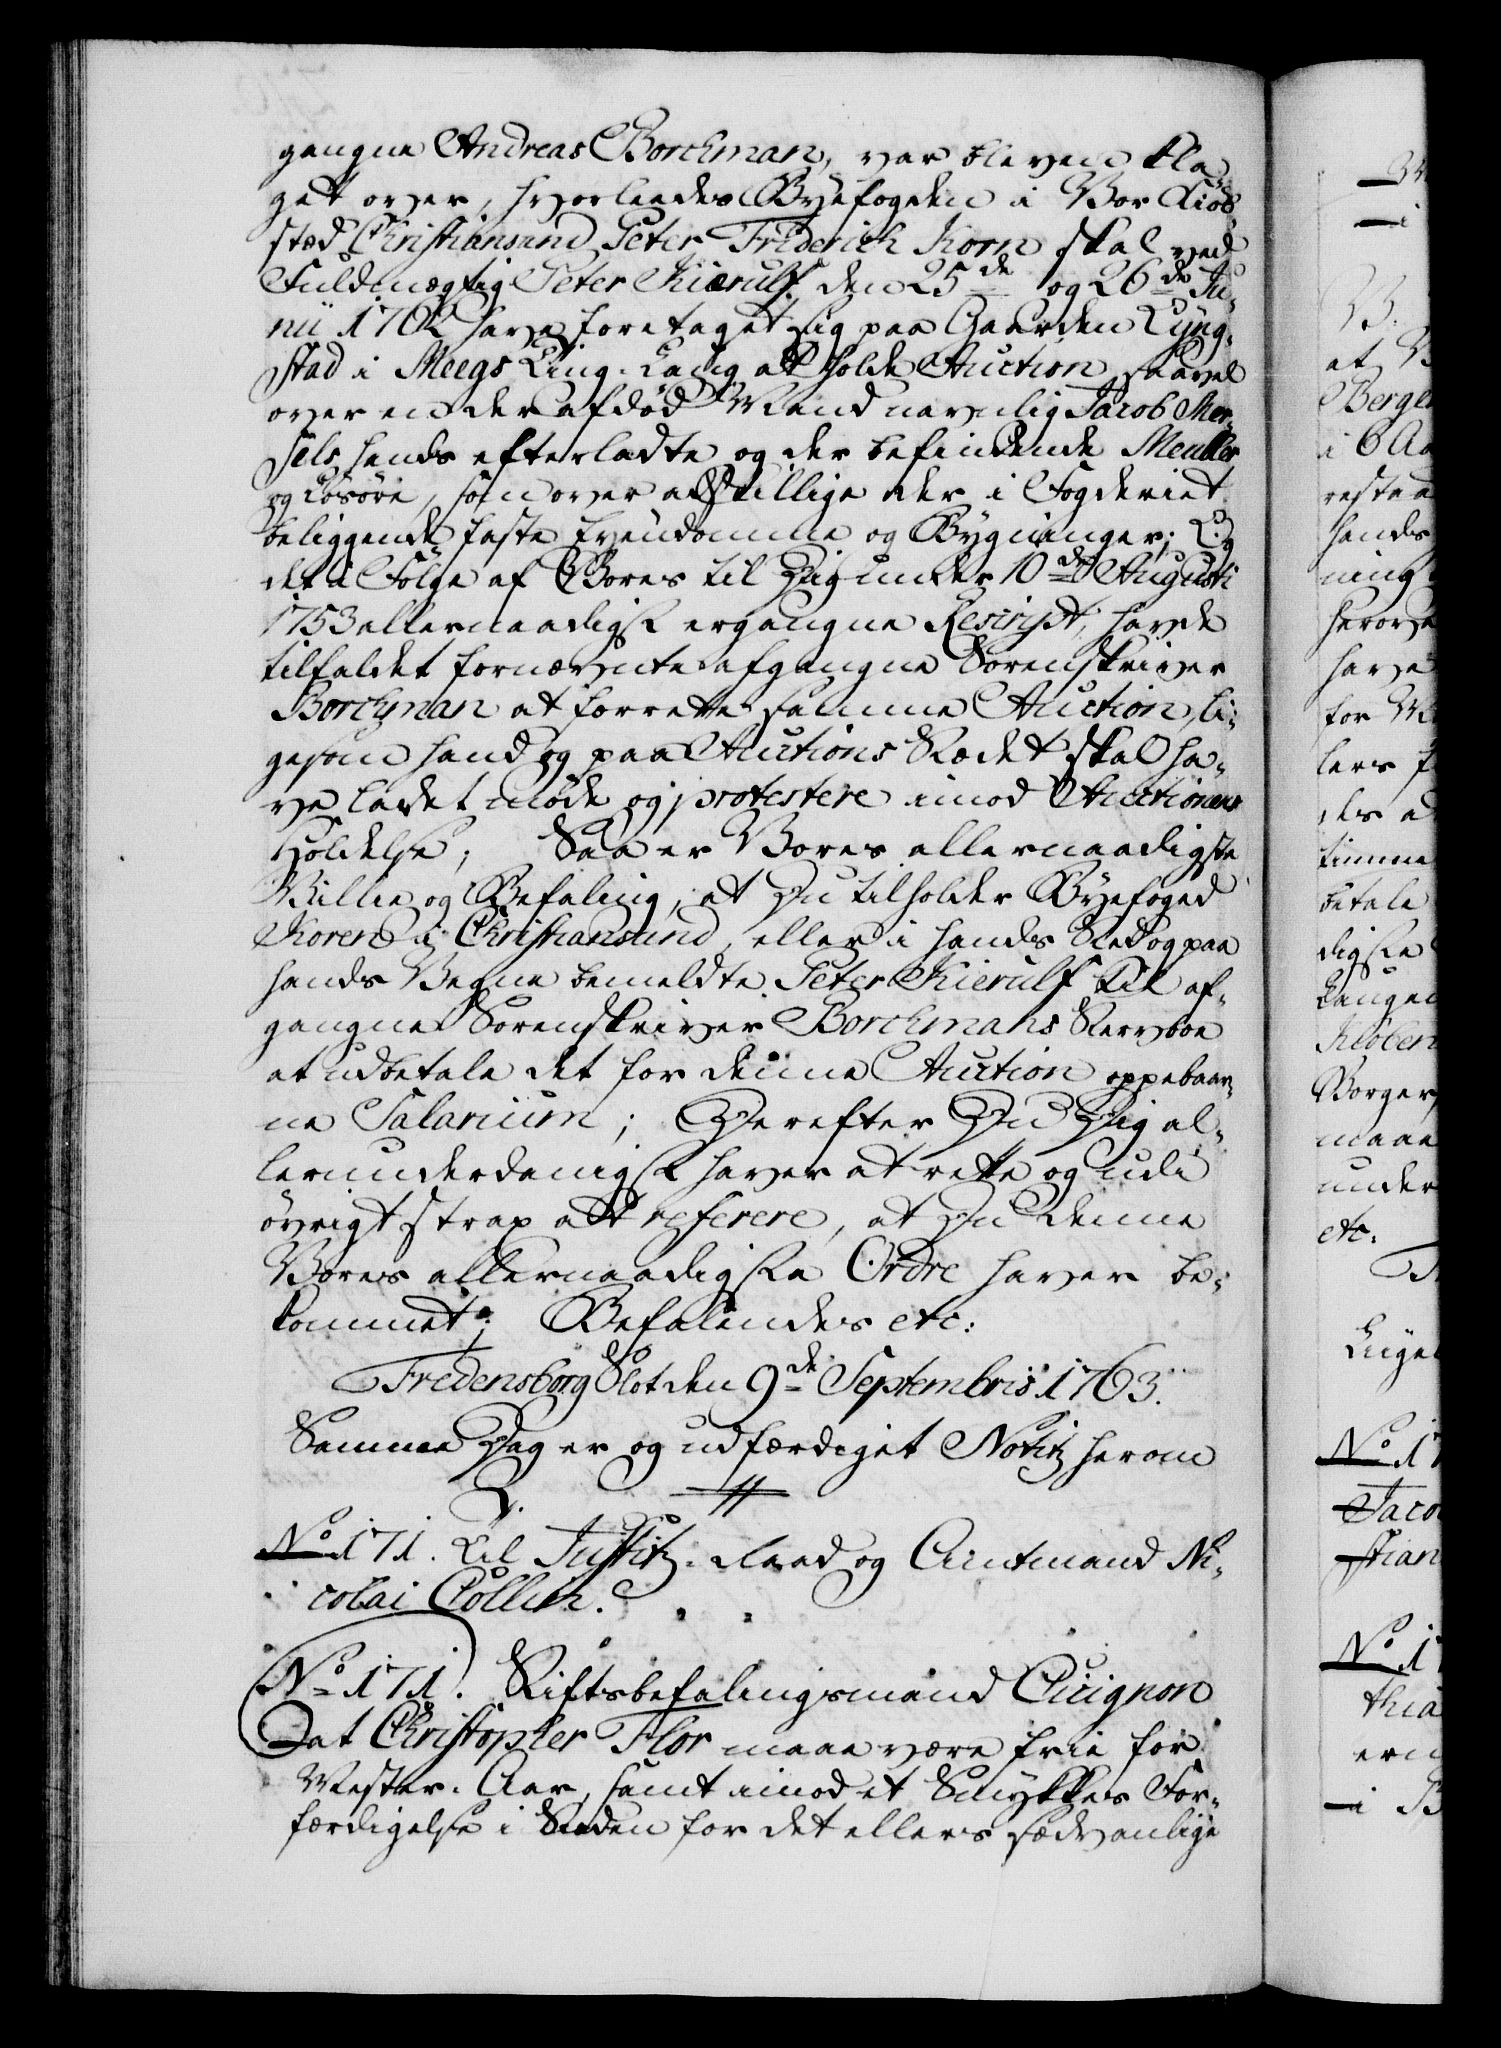 gangne Andreas Borchman, var bleven kla,,
get over, hvorleedes Byefogden i Vor Kiøb,,
stæd Christiansund Peter Friderich Korn skal ved
Fuldmægtig Peter Kierulf den 25de og 26de Ju,,
nii 1762 have foretaget sig paa Gaarden Lyng,,
stad i Meegs Ting-Laug at holde Auction, saavel
over en der afdød Mand navnlig Jacob Mer,,
sels hands efterladte og der befindende Meubler
og Løsøre, som over adskillige der i Fogderiet
beliggende faste Eyendomme og Bygninger; Og
det i Følge af Vores til Dig under 10de Augusti
1753 allernaadigst ergangne Rescript, havde
tilfaldet fornævnte afgangne Sorenskriver
Borchman at forrette samme Auction, li,,
gesom hand og paa Auctions Stædet skal ha,,
ve ladet møde og protestere imod Auctionens
Holdelse; Saa er Vores allernaadigste
Villie og Befaling, at Du tilholder Byefoged
Koren i Christiansund, eller i hands Sted og paa
hands Vegne bemeldte Peter Kierulf til af,,
gangne Sorenskriver Borchmans Stervboe
at udbetale det for denne Auction oppebaar,,
ne Salarium; Derefter Du Dig al,,
lerunderdanigst haver at rette og udi
øvrigt strax at referere, at Du denne
Vores allernaadigste Ordre haver be,,
kommet; Befalendes etc:
Fredensborg Slot den 9de Septembris 1763.
Samme Dag er og udfærdiget Notitz herom
No 171. Til Justitz-Raad og Amtmand Ni,,
colai Collin.
No 171. Stiftsbefalingsmand Cicignon
at Christopher Flor maae være frie for
Mester-Aar, samt imod et Smykkes For,,
færdigelse i Steden for det ellers sædvanlige